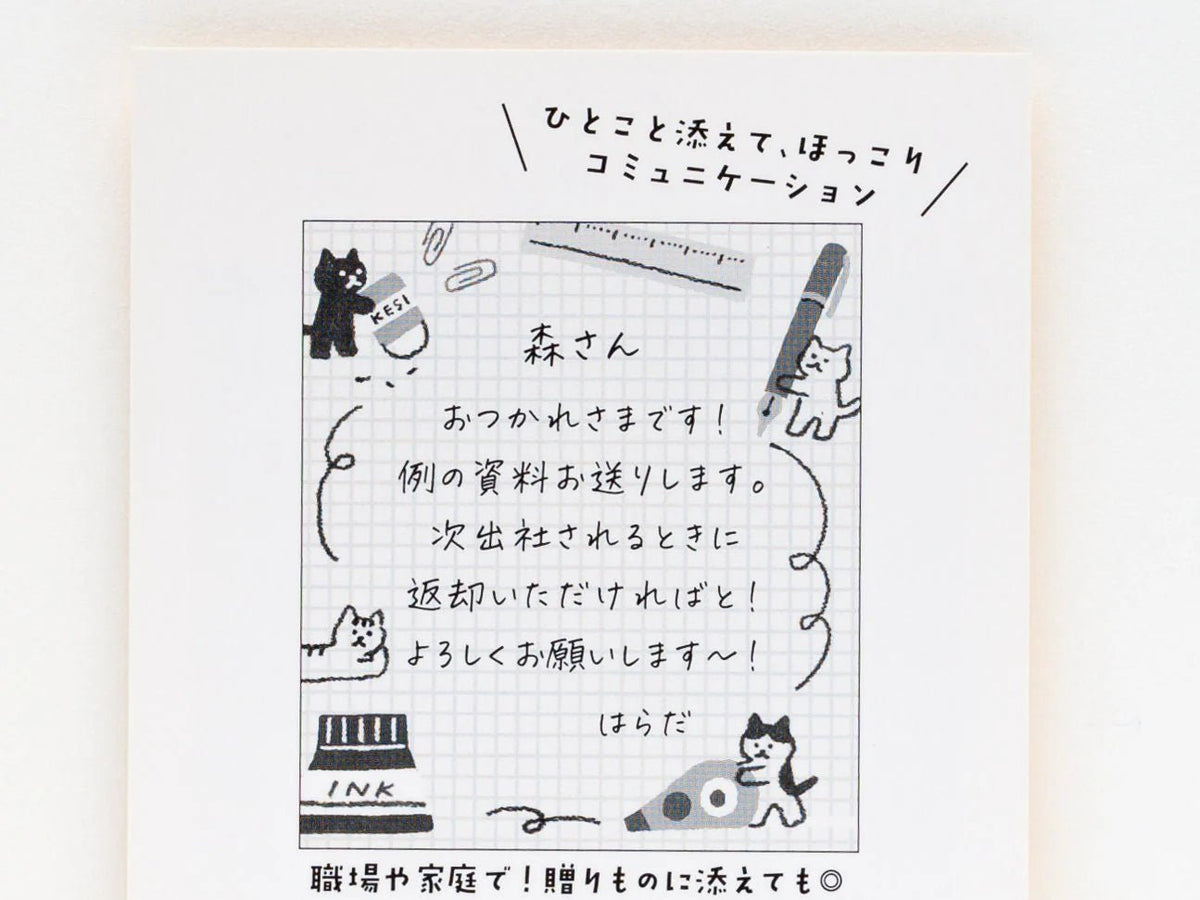 ひとこと添えて、ほっこり
コミュニケーション
KESI
森さん
おつかれさまです！
例の資料お送りします。
次出社されるときに
返却いただければと！
よろしくお願いします〜！
はらだ
INK
職場や家庭で！贈りものに添えても◎